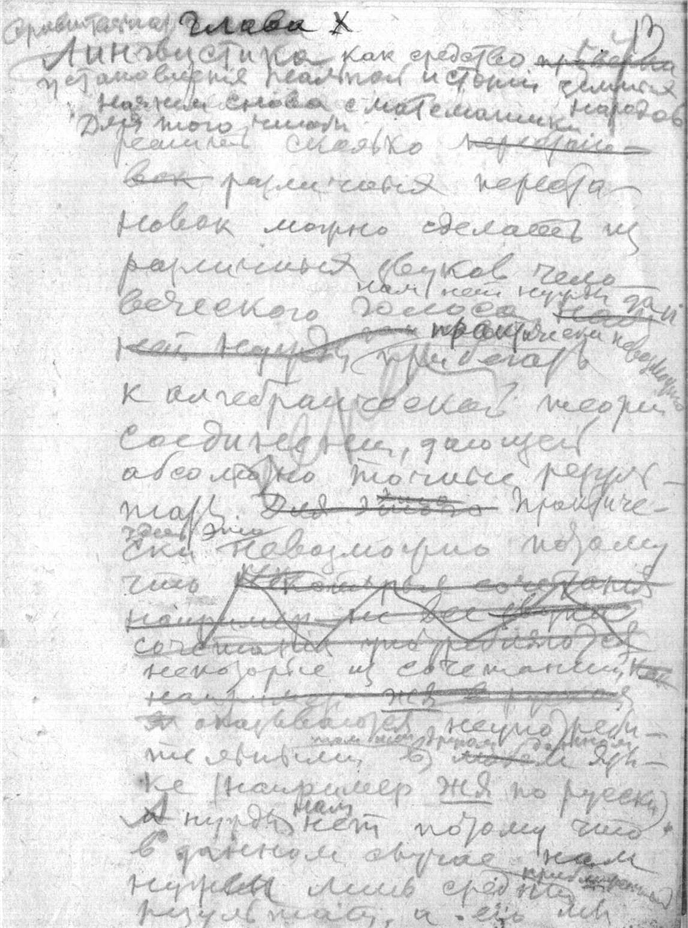 Сравнительная Глава X 13
Лингвистика как средство проверки
установления реальной истории
начнем снова с математики народов
Для того чтобы
решить сколько перестано-
вок различных переста-
новок можно сделать из
различных звуков чело-
веческого голоса нам нет нужды даже
нет нужды практически невозможно
прибегать
к алгебраической теории
соединений, дающей
абсолютно точные резуль-
таты. Для этого Практиче-
ски это невозможно потому
что некоторые сочетания
например не все звуки
сочетания употребляются
некоторые из сочетаний как
например жя в русск
оказываются неупотреби-
тельными в том или другом данном язы-
ке (например жя по русски)
А нужды нам нет потому что
в данном случае нам
нужны лишь средние
результаты, а если мы